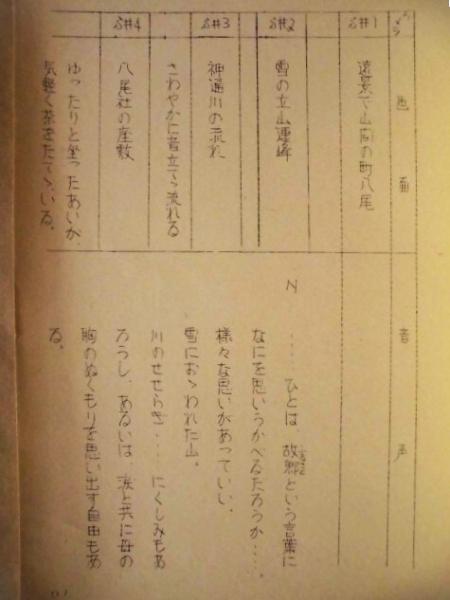 画面
音声
S#1
遠景で山間の町八尾
S#2
雪の立山連峰
S#3
神通川の流れ
さわやかに音立てゝ流れる
S#4
八尾社の座敷
ゆったりと坐ったあいが、
気軽く茶をたてゝいる。
N
……ひとは、故郷という言葉に
なにを思いうかべるだろうか……。
様々な思いがあっていい。
雪におゝわれた山。
川のせせらぎ……にくしみもあ
ろうし、あるいは、涙と共に母の
胸のぬくもりを思い出す自由もあ
る。